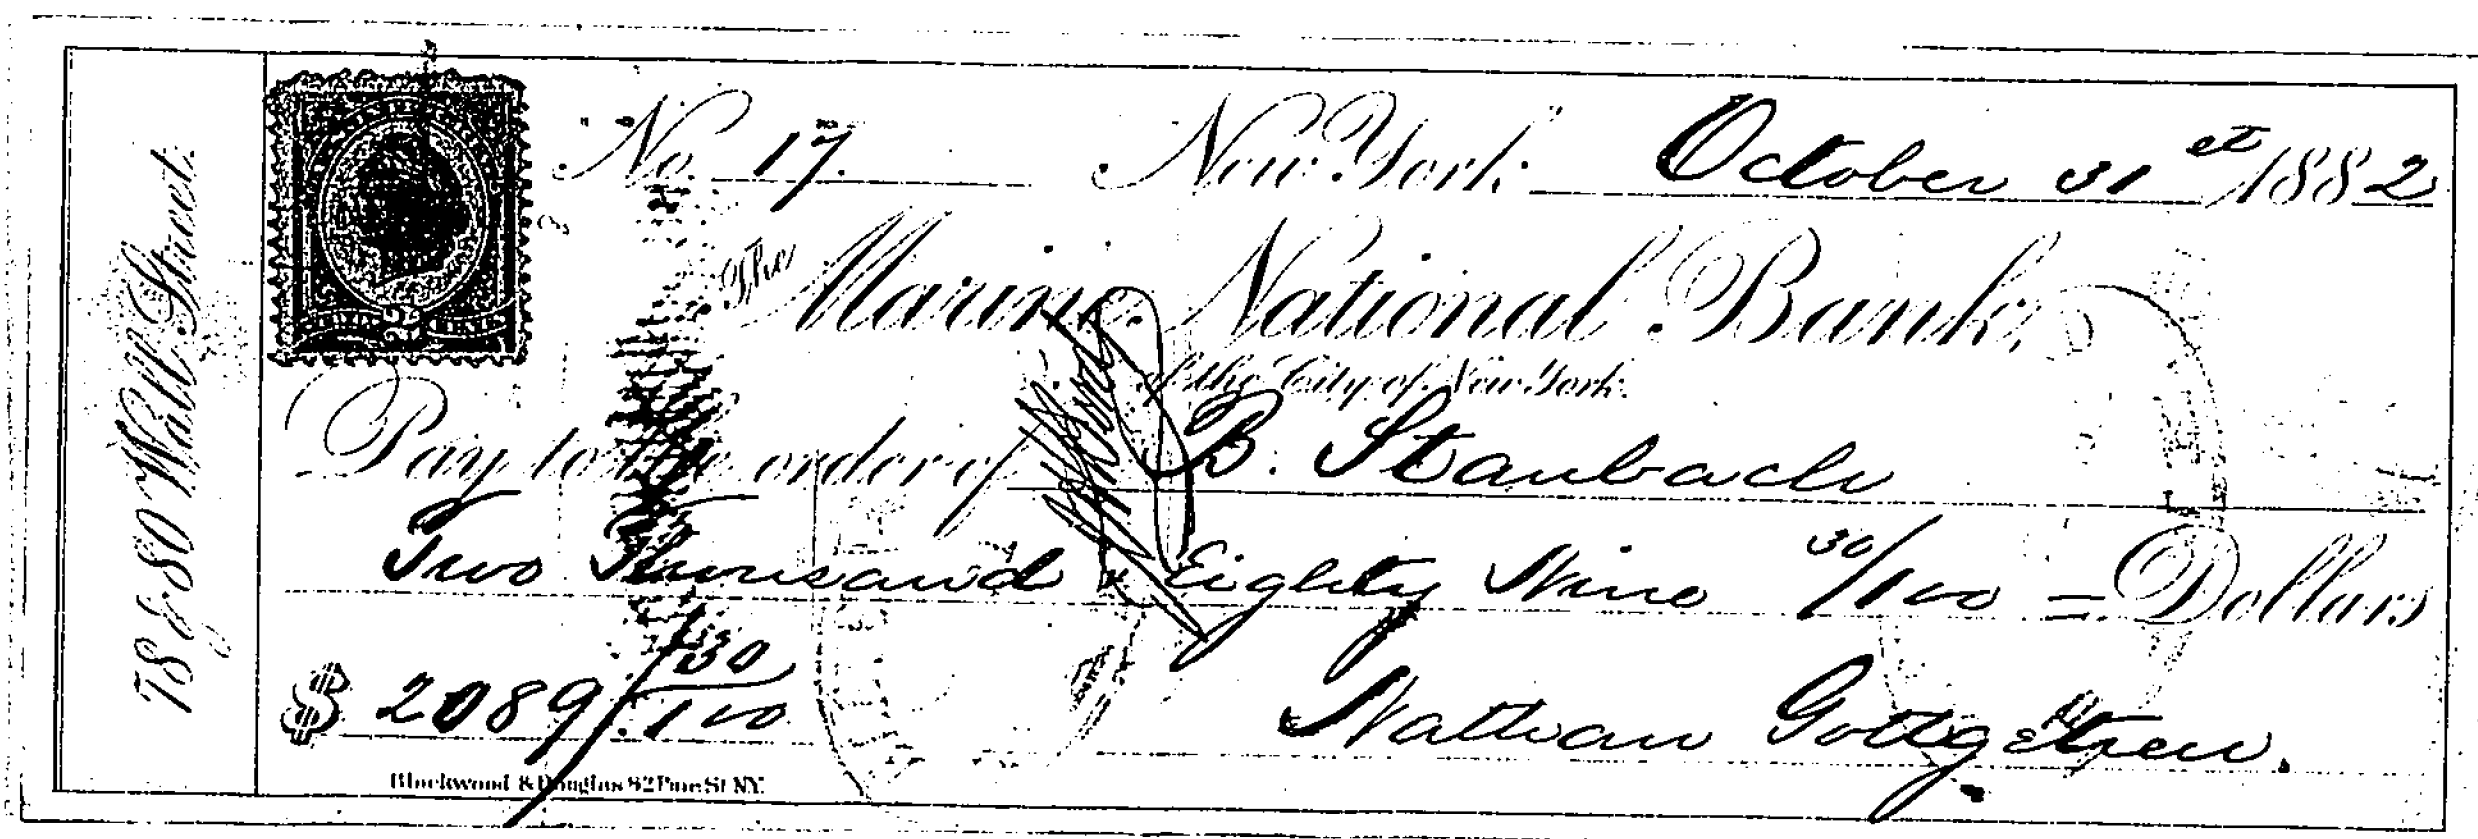 78 & 80 Wall Street.
No. 17. New York October 31st 1882
The Marine National Bank,
of the City of New York.
Pay to the order of B. Staubach
Two Thousand & Eighty Nine 30/100 = Dollars
$ 2089. 30/100 Nathan Gottgetreu.
Blackwood & Douglas 82 Pine St. N.Y.